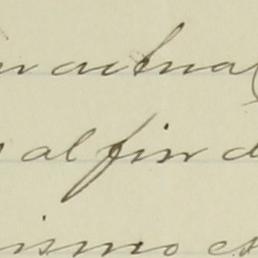 actual
al fin d
ismo es